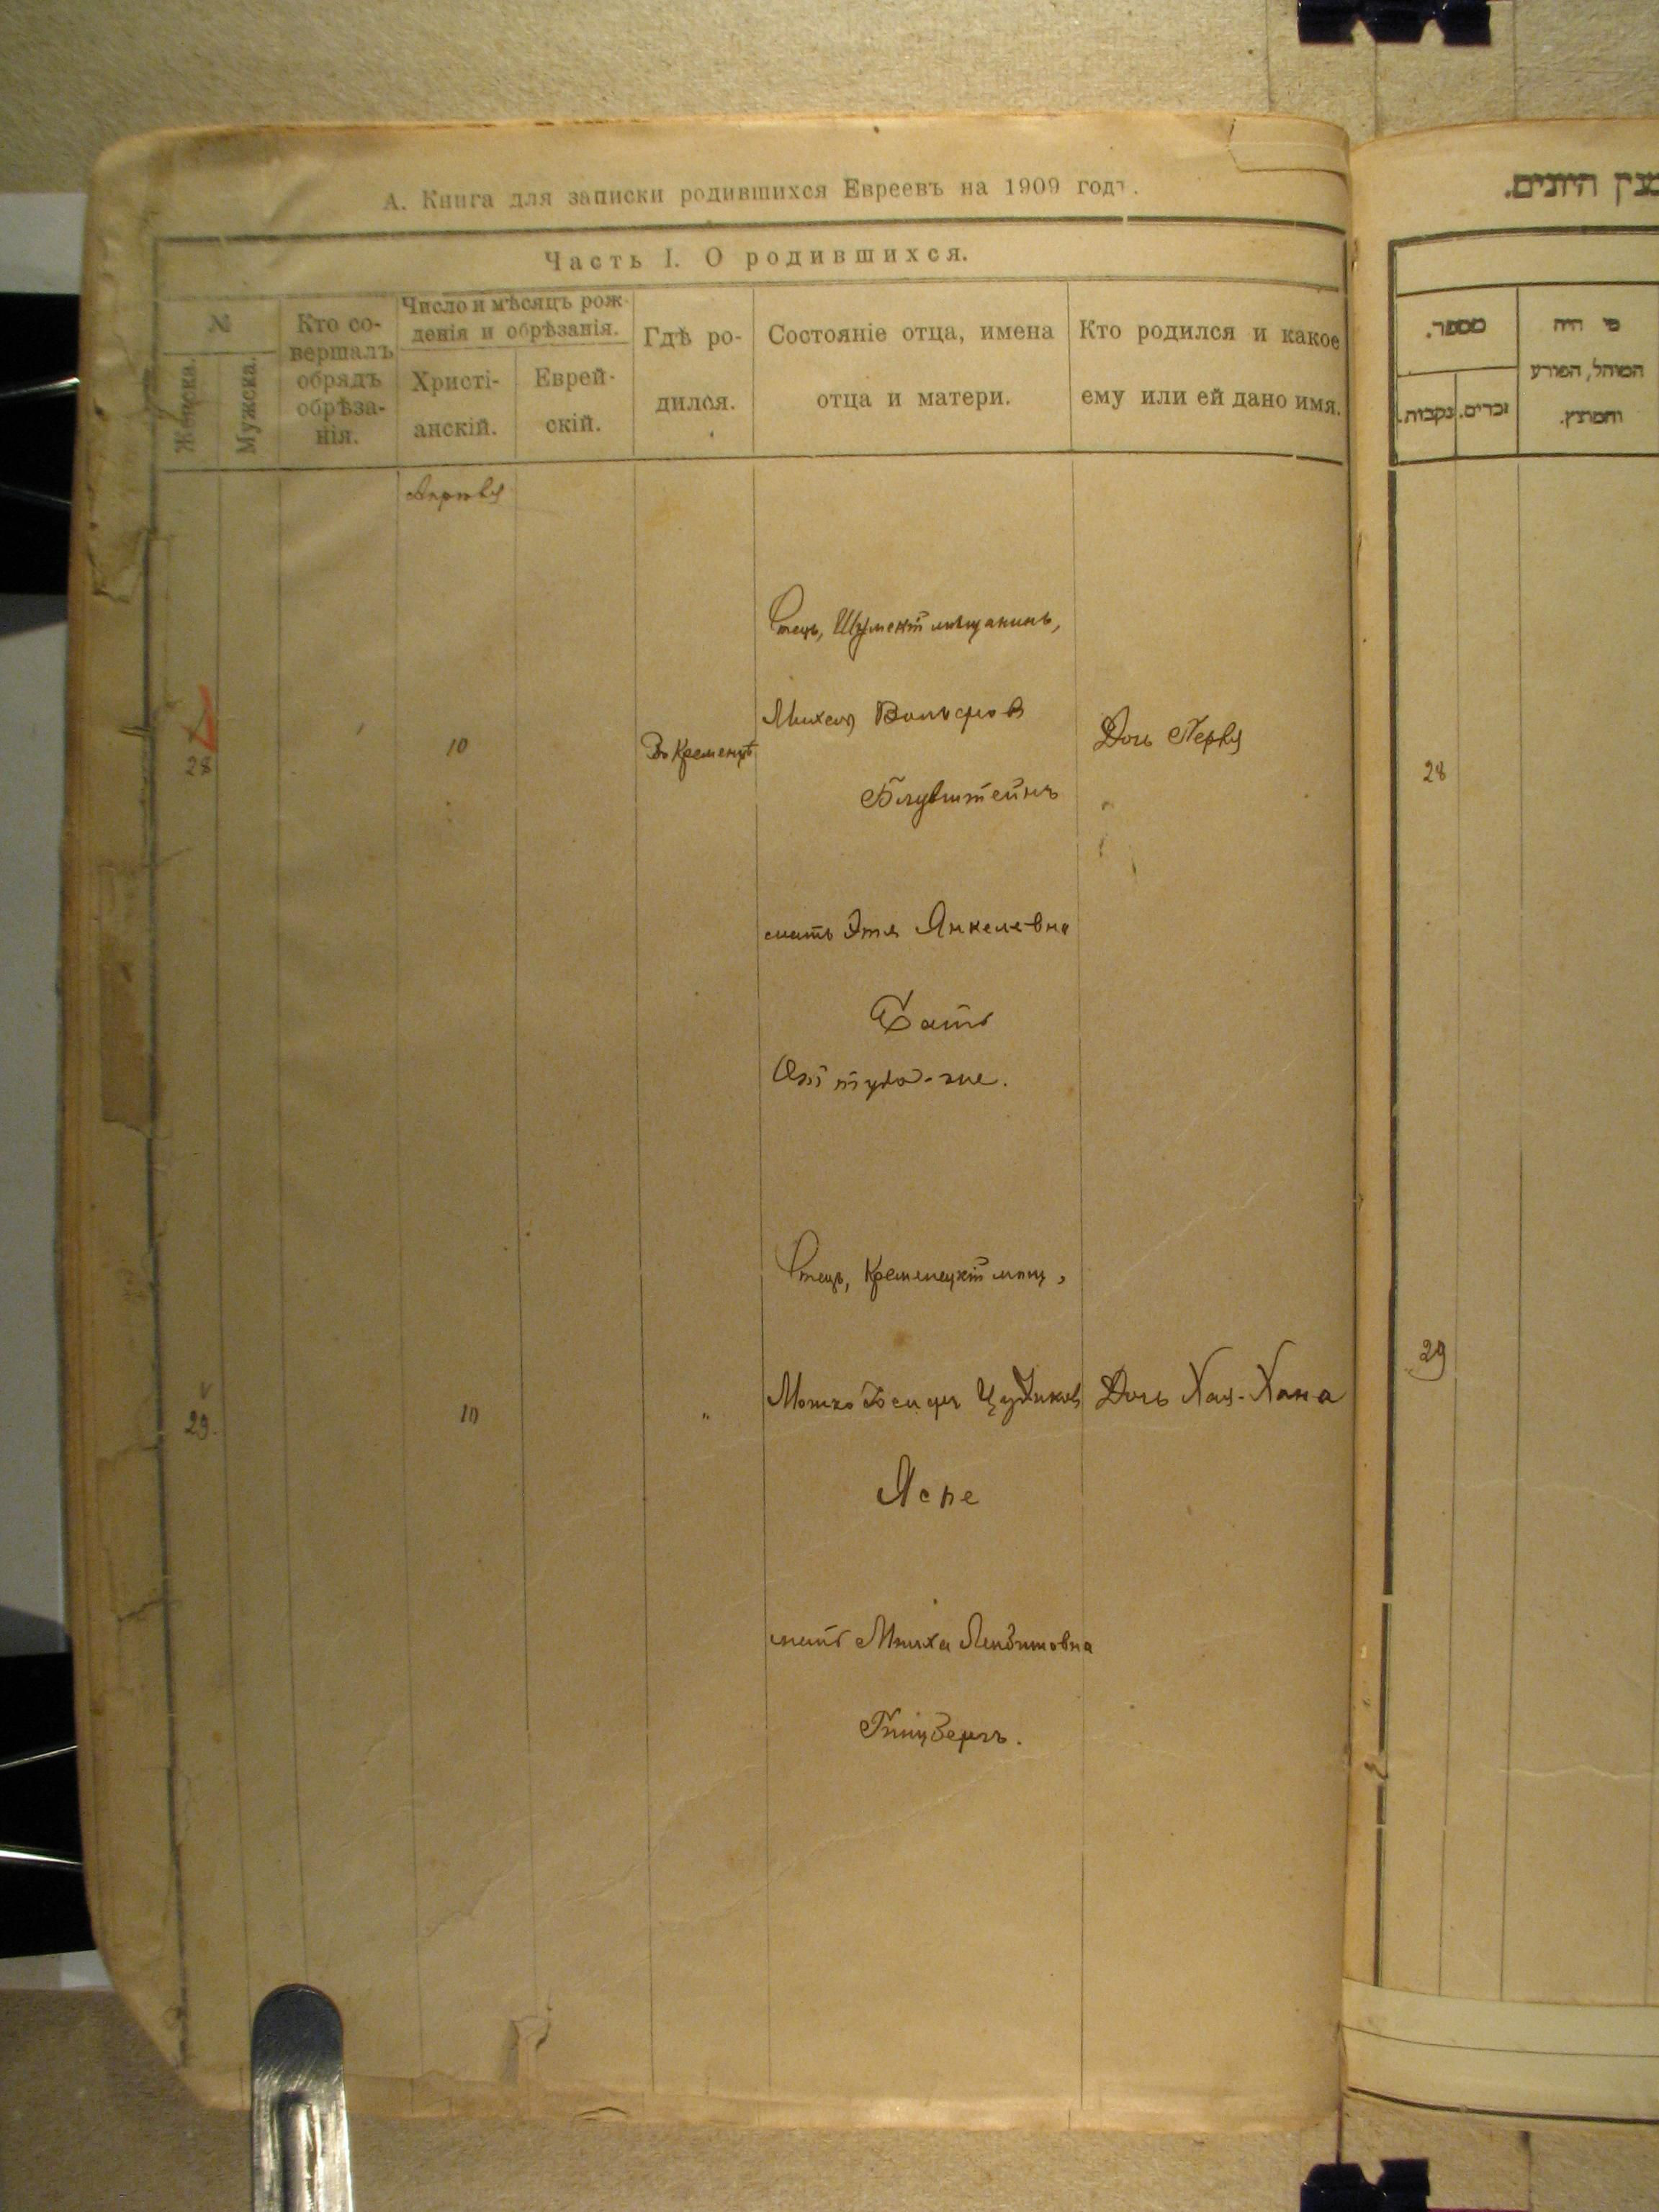 А. Книга для записки родившихся Евреевъ на 1909 годъ.
Часть I. О родившихся.
№
Женска.
Мужска.
Кто со-
вершалъ
обрядъ
обрѣза-
нія.
Число и мѣсяцъ рож-
денія и обрѣзанія.
Христі-
анскій.
Еврей-
скій.
Гдѣ ро-
дился.
Состояніе отца, имена
отца и матери.
Кто родился и какое
ему или ей дано имя.
28
10
Въ Кременцѣ
Отецъ, Шумскій мѣщанинъ,
Михель Вольфов
Блувштейнъ
мать Этя Янкелевна
Дочь Перля
29.
10
"
Отецъ, Кременецкій мѣщ.,
Мошко Іосифъ
Яспе
мать
Гинзбергъ.
Дочь Хая-Хана
מספר.
נקבות.
זכרים.
מי היה
המוהל, הפורע
והמוצץ.
28
29